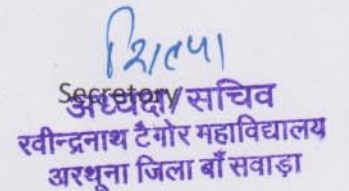 शिल्पा
Secretory
अध्यक्ष/सचिव
रवीन्द्रनाथ टैगोर महाविद्यालय
अरथुना जिला बाँसवाड़ा